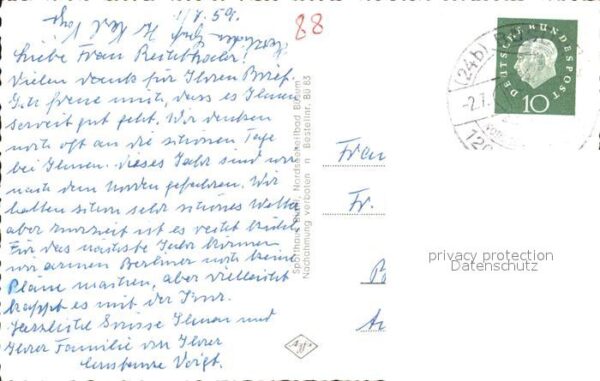 1/7.59.
88
Liebe Frau
Vielen Dank für Ihren Brief.
Ich freue mich, dass es Ihnen
soweit gut geht. Wir denken
noch oft an die schönen Tage
bei Ihnen. Dieses Jahr sind wir
nach dem Norden gefahren. Wir
hatten schon sehr schönes Wetter
aber zurzeit ist es recht kühl.
Für das nächste Jahr können
wir armen Berliner noch keine
Pläne machen, aber vielleicht
klappt es mit der Kur.
Herzliche Grüsse Ihnen und
Ihrer Familie von Ihrer
Voigt.
Nordseeheilbad Büsum
Nachahmung verboten Bestellnr. Bü 83
Frau
Fr.
DEUTSCHE BUNDESPOST
10
(24b)
-2.7.
privacy protection
Datenschutz